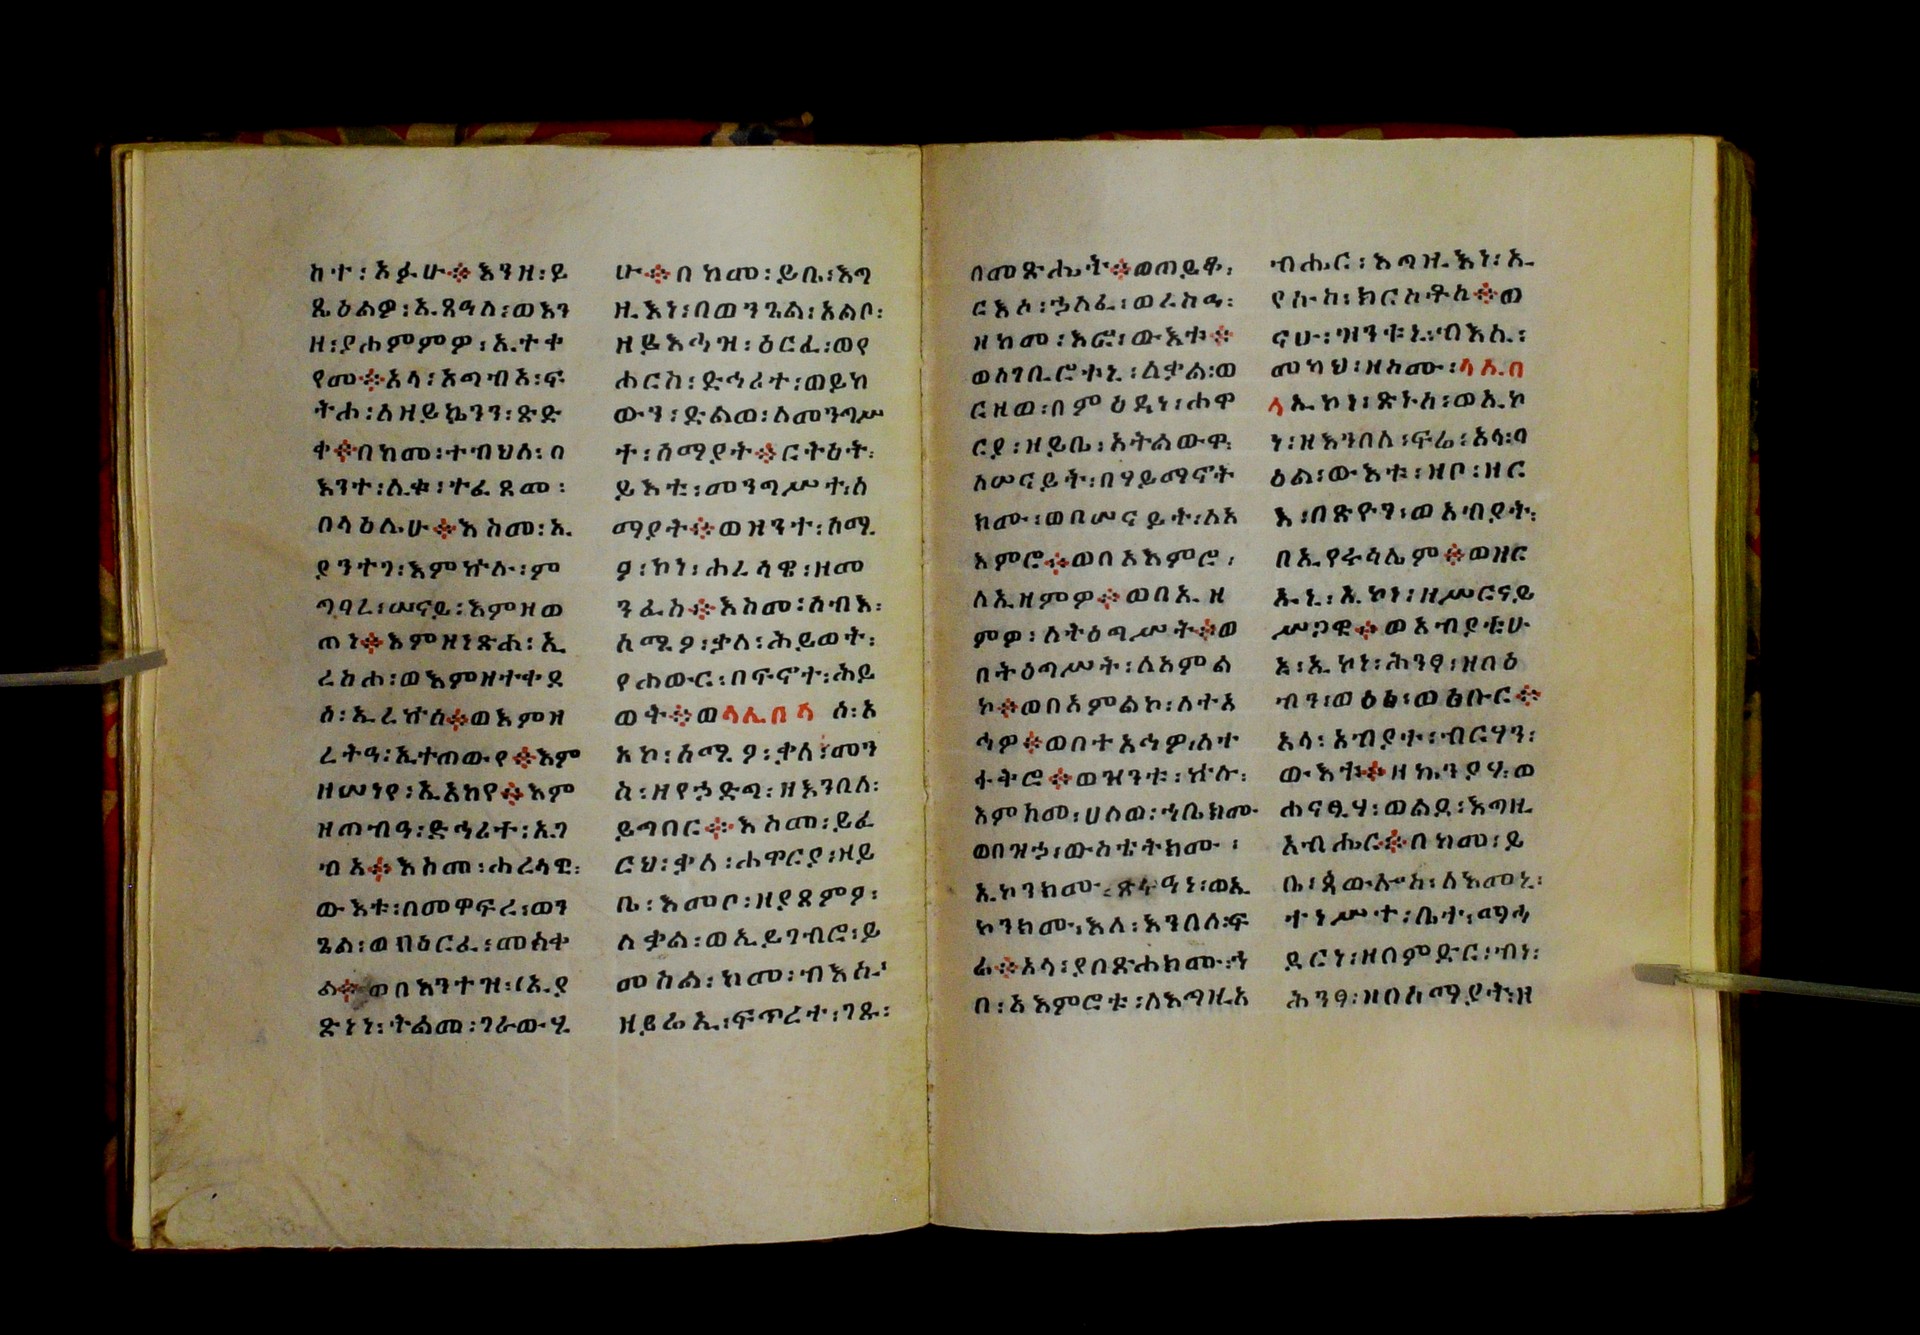 ከተ፡አፉሁ፨እንዘ፡ይ
ጼዕልዎ፡ኢጸዓለ፡ወእን
ዘ፡ያሐምምዎ፡ኢተቀ
የመ፨አላ፡አግብአ፡ፍ
ትሐ፡ለዘይኴንን፡ጽድ
ቀ፨በከመ፡ተብህለ፡በ
እንተ፡ሊቁ፡ተፈጸመ፡
በላዕሌሁ፨እስመ፡ኢ
ያንተገ፡እምኵሉ፡ም
ግባረ፡ሠናይ፡እምዘወ
ጠነ፨እምዘነጽሐ፡ኢ
ረስሐ፡ወእምዘተቀደ
ሰ፡ኢረኵሰ፨ወእምዘ
ረትዓ፡ኢተጠውየ፨እም
ዘሠነየ፡ኢአከየ፨እም
ዘጠብዓ፡ድኅሪተ፡ኢገ
ብአ፨እስመ፡ሐረሳዊ፡
ውእቱ፡በመዋፍረ፡ወን
ጌል፡ወበዕርፈ፡መስቀ
ል፨ወበእንተዝ፡ኢያ
ጽነነ፡ትልመ፡ገራውሂ
ሁ፨በከመ፡ይቤ፡እግ
ዚእነ፡በወንጌል፡አልቦ፡
ዘይእኅዝ፡ዕርፈ፡ወየ
ሐርስ፡ድኅሪተ፡ወይከ
ውን፡ድልወ፡ለመንግሥ
ተ፡ሰማያት፨ርትዕት፡
ይእቲ፡መንግሥተ፡ሰ
ማያት፨ወዝንተ፡ሰሚ
ዖ፡ኮነ፡ሐረሳዊ፡ዘመ
ንፈስ፨እስመ፡ሰብእ፡
ሰሚዖ፡ቃለ፡ሕይወት፡
የሐውር፡በፍኖተ፡ሕይ
ወት፨ወሳሌበሳ ሰ፡አ
አኮ፡ሰሚዖ፡ቃለ፡መን
ስ፡ዘየኃድግ፡ዘእንበለ፡
ይግበር፨እስመ፡ይፈ
ርህ፡ቃለ፡ሐዋርያ፡ዘይ
ቤ፡እመቦ፡ዘያጸምዖ፡
ለቃል፡ወኢይገብሮ፡ይ
መስል፡ከመ፡ብእሲ፡
ዘይሬኢ፡ፍጥረተ፡ገጹ፡
በመጽሔት፨ወጠይቆ፡
ርእሶ፡ኃለፈ፡ወረስዓ፡
ዘከመ፡እፎ፡ውእቱ፨
ወለገቢሮተኒ፡ለቃል፡ወ
ርዘወ፡በምዕዳነ፡ሐዋ
ርያ፡ዘይቤ፡አትልውዋ፡
ለሠናይት፡በሃይማኖት
ክሙ፡ወበሠናይት፡ለአ
እምሮ፨ወበአእምሮ፡
ለኢዘምዎ፨ወበኢዘ
ምዎ፡ለትዕግሥት፨ወ
በትዕግሥት፡ለአምል
ኮ፨ወበአምልኮ፡ለተአ
ኅዎ፨ወበተአኅዎ፡ለተ
ፋትሮ፨ወዝንቱ፡ኵሉ፡
እምከመ፡ሀለወ፡ኀቤክሙ
ወበዝኃ፡ውስቴትክሙ፡
ኢኮንክሙ፡ጽሩዓነ፡ወኢ
ኮንክሙ፡እለ፡እንበለ፡ፍ
ሬ፨አላ፡ያበጽሐክሙ፡ኀ
በ፡አእምሮቱ፡ለእግዚአ
ብሔር፡እግዚእነ፡ኢ
የሱስ፡ክርስቶስ፨ወ
ናሁ፡ዝንቱኒ፡ብእሲ፡
መካህ፡ዘስሙ፡ሳሌበ
ሳኢኮነ፡ጽኑስ፡ወኢኮ
ነ፡ዘእንበለ፡ፍሬ፡አላ፡ባ
ዕል፡ውእቱ፡ዘቦ፡ዘር
እ፡በጽዮን፡ወአብያት፡
በኢየሩሳሌም፨ወዘር
ኡኒ፡ኢኮነ፡ዘሥርናይ
ሥጋዊ፨ወአብያቲሁ
ኒ፡ኢኮነ፡ሕንፃ፡ዘበዕ
ብን፡ወዕፅ፡ወፅቡር፨
አላ፡አብያተ፡ብርሃን፡
ውእቱ፨ዘኬንያሃ፡ወ
ሐናፂሃ፡ወልደ፡እግዚ
አብሔር፨በከመ፡ይ
ቤ፡ጳውሎስ፡ለእመኒ፡
ተነሥተ፡ቤተ፡ማኅ
ደርነ፡ዘበምድር፡ብነ፡
ሕንፃ፡ዘበሰማያት፡ዘ